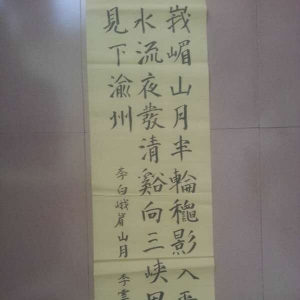 峩嵋山月半輪穐影入平
水流夜發清谿向三峡思
見下渝州
李白峨眉山月 李